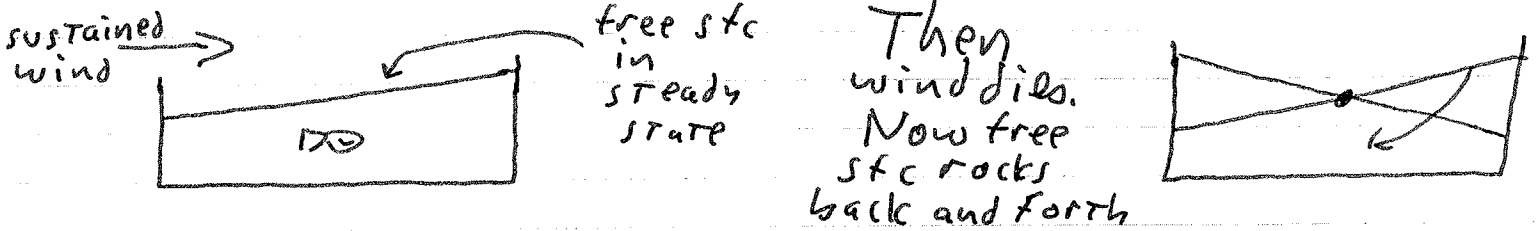 sustained
wind
free sfc
in
steady
state
Then
wind dies.
Now free
sfc rocks
back and forth